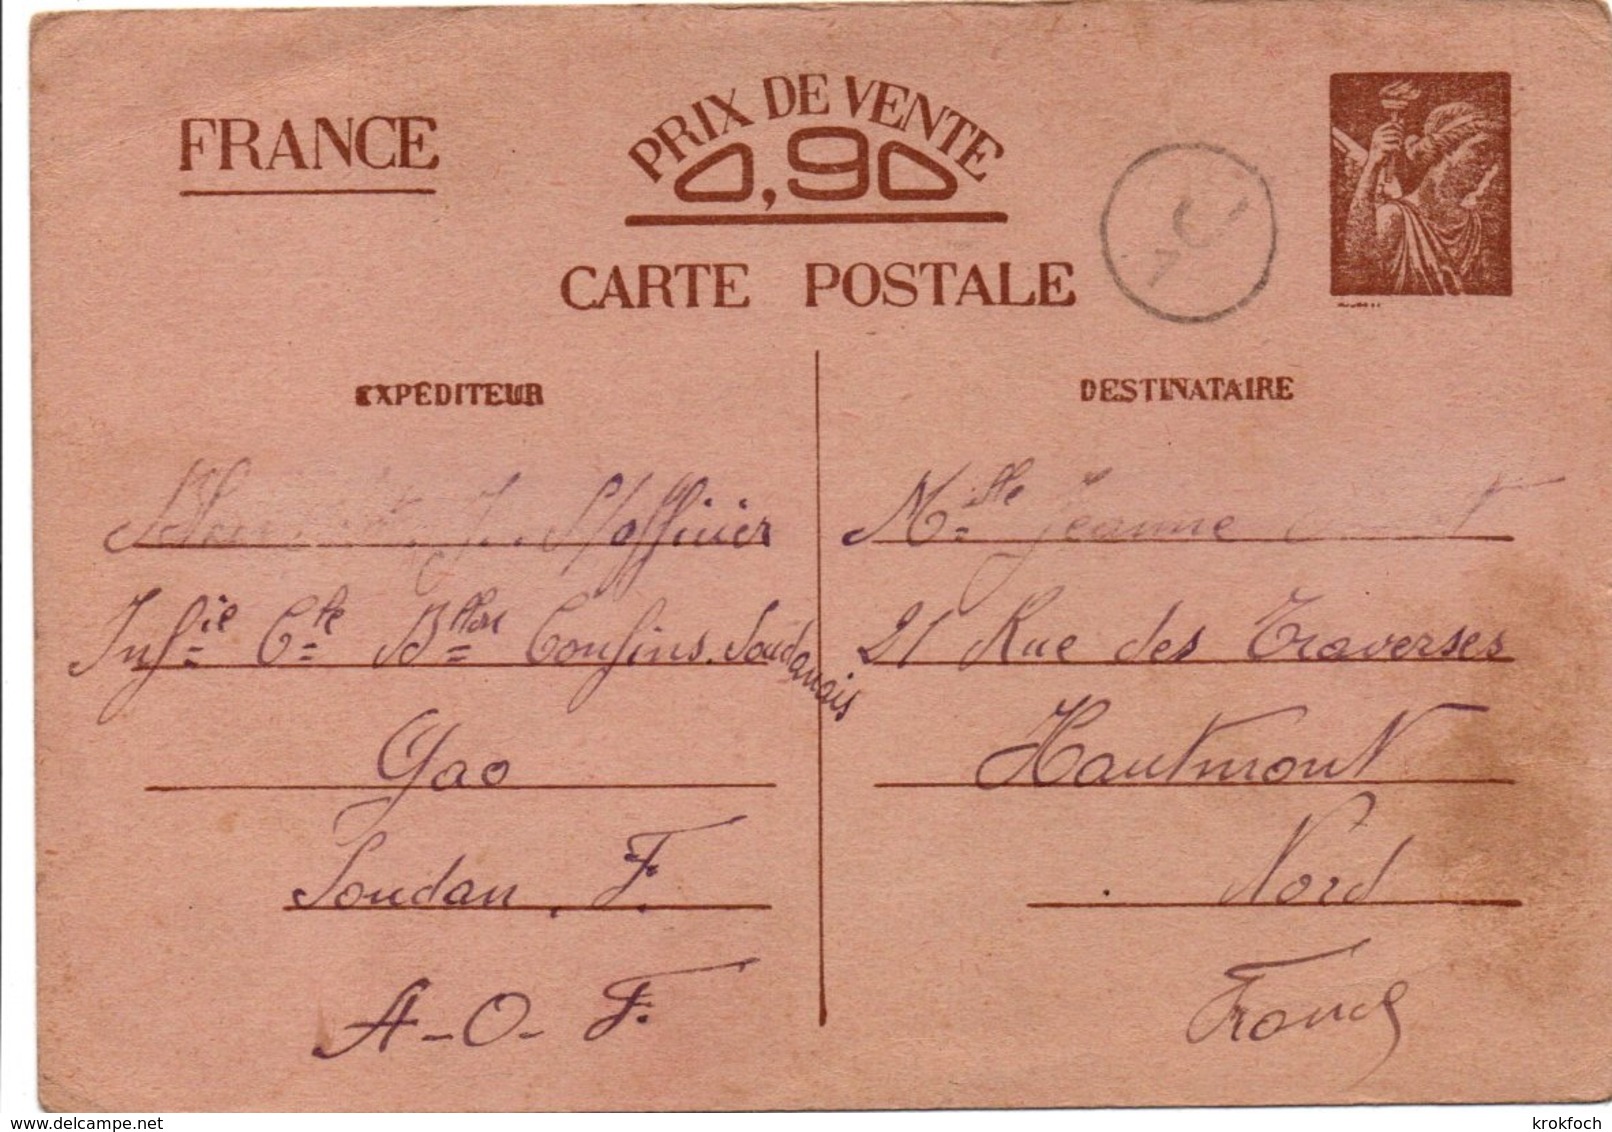 FRANCE
PRIX DE VENTE
0,90
CARTE POSTALE
EXPÉDITEUR
J. S/officier
Infie Cie Btllon Confins Soudanais
Gao
Soudan. F.
A-O-F.
DESTINATAIRE
Melle Jeanne
21 Rue des Traverses
Hautmont
Nord
France
delcampe.net
krokfoch